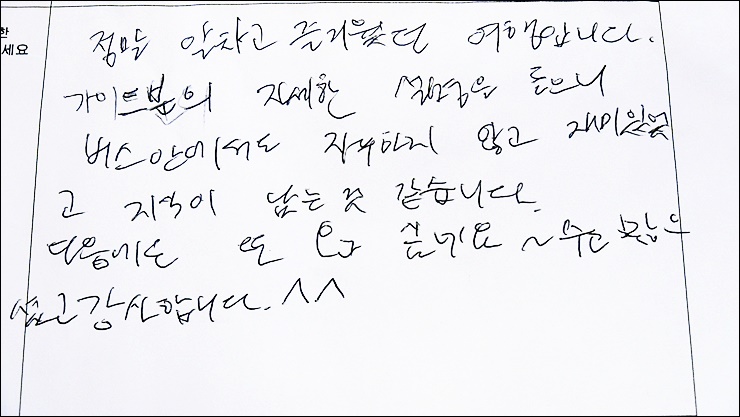 한
세요
정말 알차고 즐거웠던 여행입니다.
가이드분의 자세한 설명을 들으니
버스안에서도 지루하지 않고 재미있었
고 지식이 남는 것 같습니다.
다음에도 또 오고 싶네요 ~
감사합니다. ^^